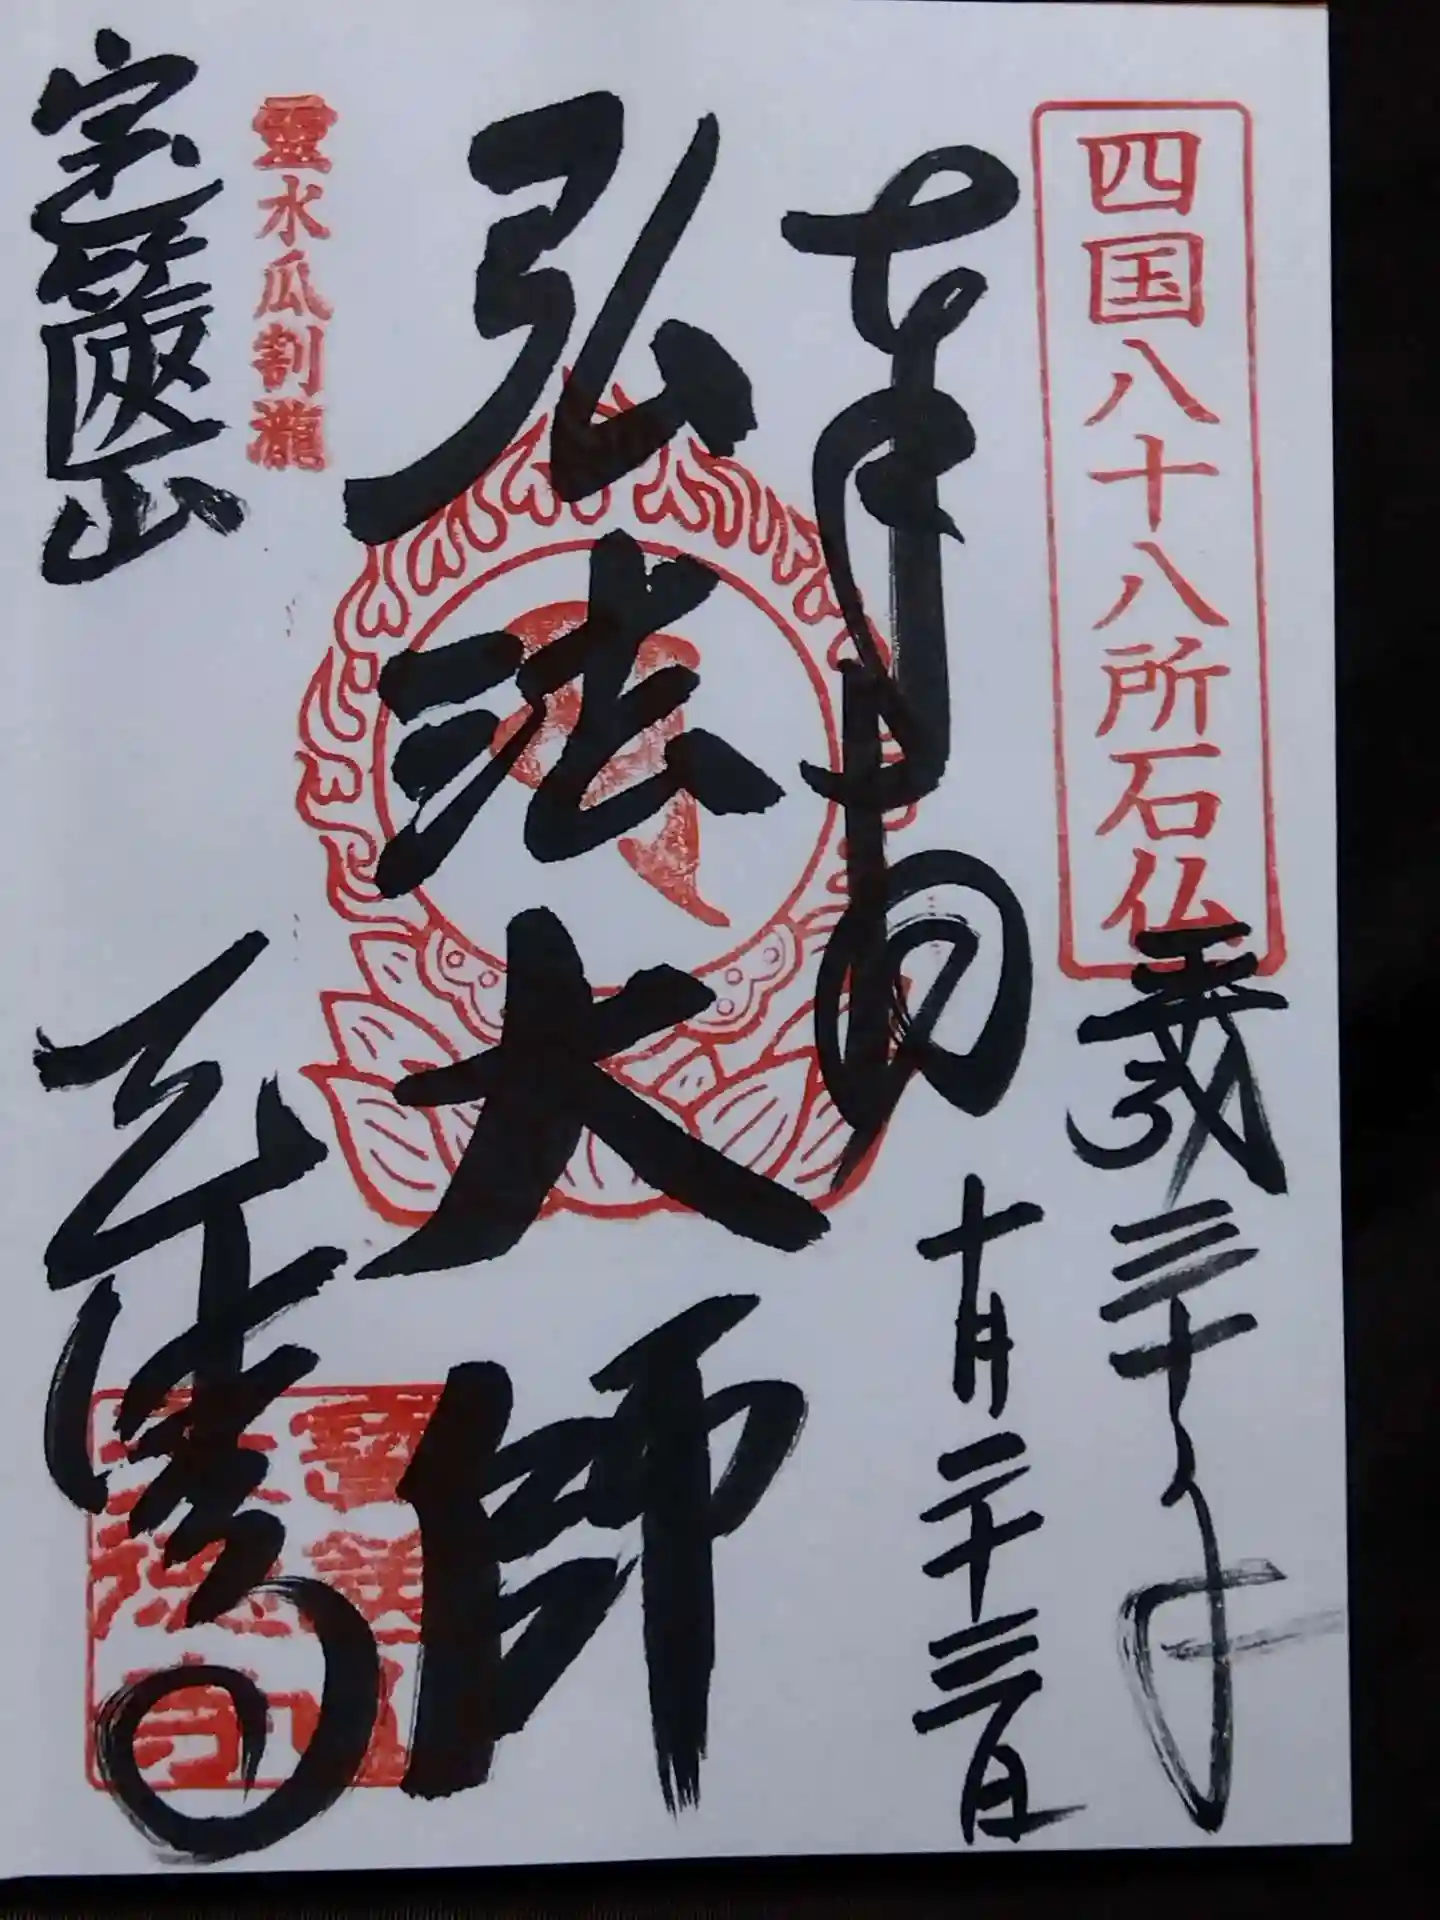 四国八十八所石仏
平成三十年
十月二十三日
奉拝
弘法大師
霊水瓜割瀧
宝篋山
天徳寺